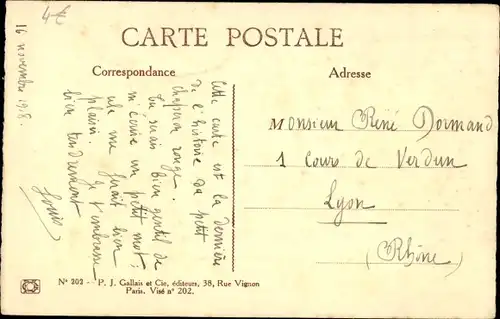 4€
CARTE POSTALE
Correspondance
Adresse
16 novembre 1918.
Cette carte est la dernière
de l'histoire du petit
chaperon rouge.
Tu serais bien gentil de
m'écrire un petit mot;
cela me ferait bien
plaisir. Je t'embrasse
bien tendrement
Louis
Monsieur René Dormand
1 Cours de Verdun
Lyon
(Rhône)
N° 202 - P. J. Gallais et Cie, éditeurs, 38, Rue Vignon
Paris. Visé n° 202.